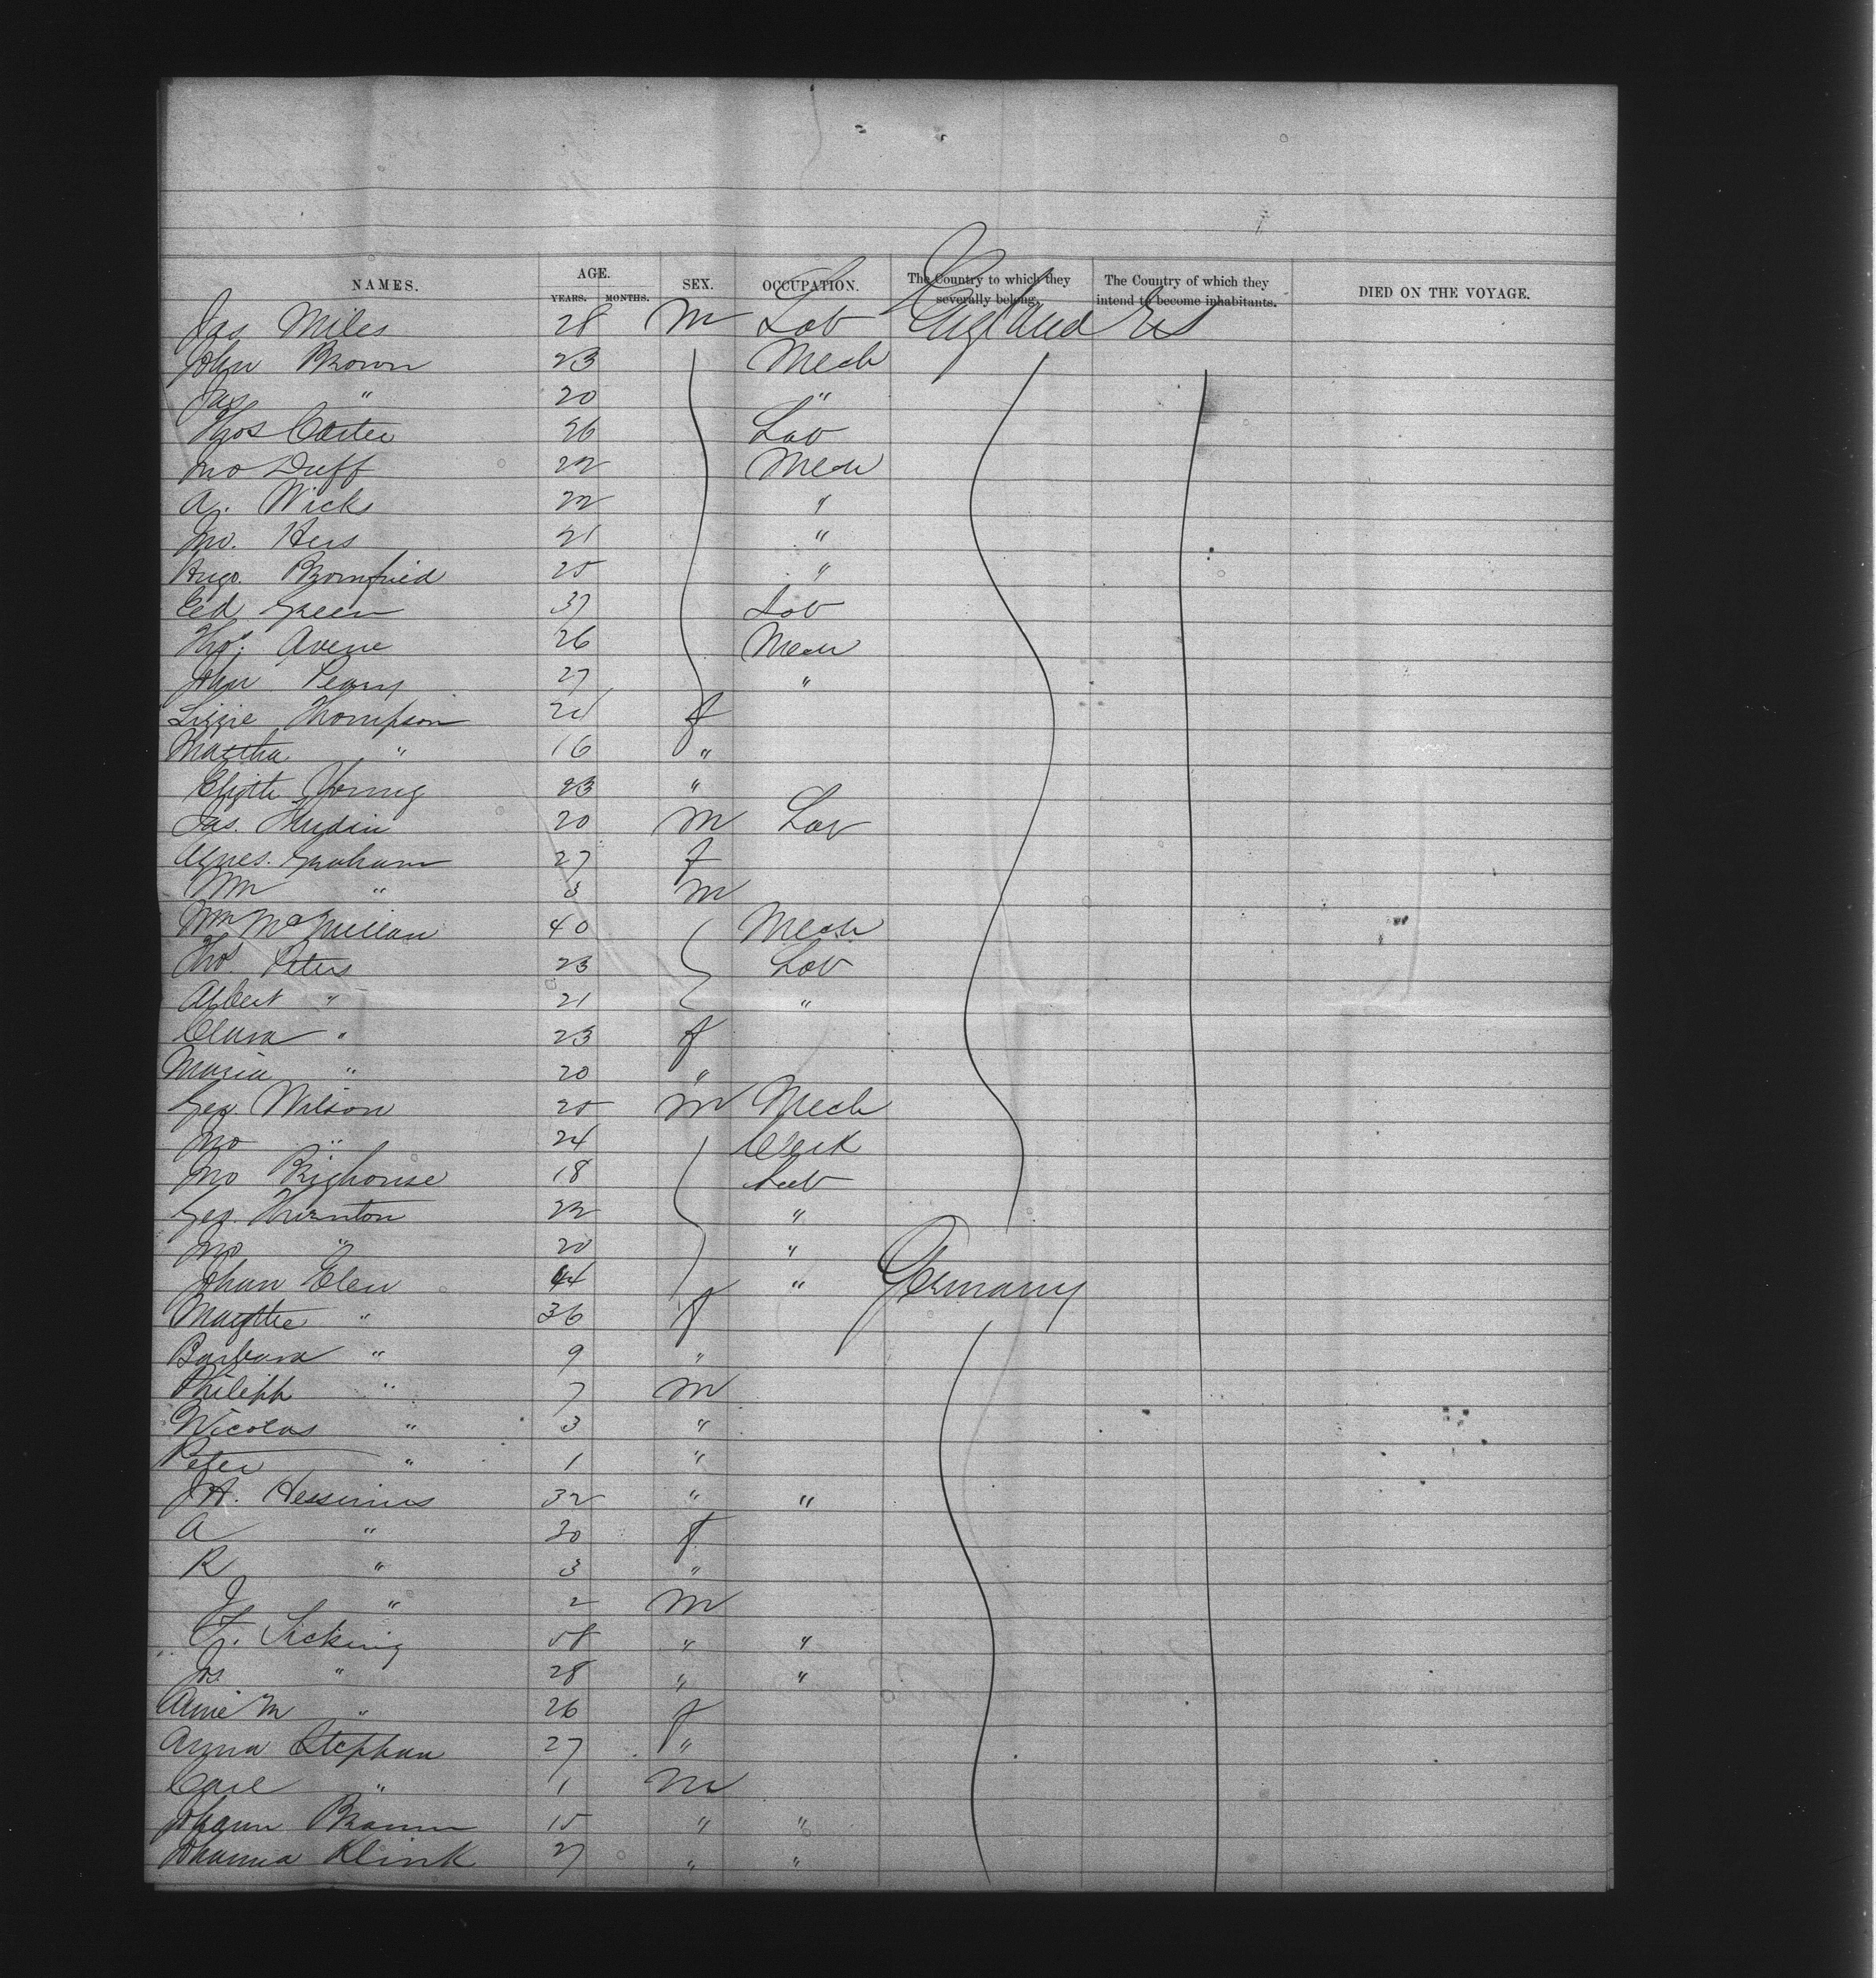 NAMES. AGE. YEARS. MONTHS. SEX. OCCUPATION. The Country to which they severally belong. The Country of which they intend to become inhabitants. DIED ON THE VOYAGE.
Jas Miles 28 m Lab England US
John Brown 23 Mech
Jas " 20 "
Thos Carter 26 Lab
Jno Duff 22 Mech
A. Wicks 22 "
Jno. Hers 21 "
Hugo. Bromfried 25 "
Ed Green 37 Lab
Thos. Avene 26 Mech
John Peary 27 "
Lizzie Thompson 21 f
Martha " 16 "
Elizth Young 23 "
Jas. 20 m Lab
Agnes. Graham 27 f
Wm " 3 m
Wm McMillan 40 Mech
Thos Peters 23 Lab
Albert " 21 "
Clara " 23 f
Maria " 20 "
Geo Wilson 25 m Mech
Jno " 24 Clerk
Jno Brighouse 18 Lab
Geo. Thornton 22 "
Jno " 20 "
Johan Elen 44 " Germany
Magthe " 36 f
Barbara " 9 "
Philipp " 7 m
Nicolas " 3 "
Peter " 1 "
J.H. Hessinius 32 " "
A " 30 f
R " 3 "
J " 2 m
F. Sicking 58 " "
Jos. " 28 " "
Anne M " 26 f
Anna Stephan 27 "
Carl " 1 m
Johann Braun 15 " "
Johanna Klink 27 " "